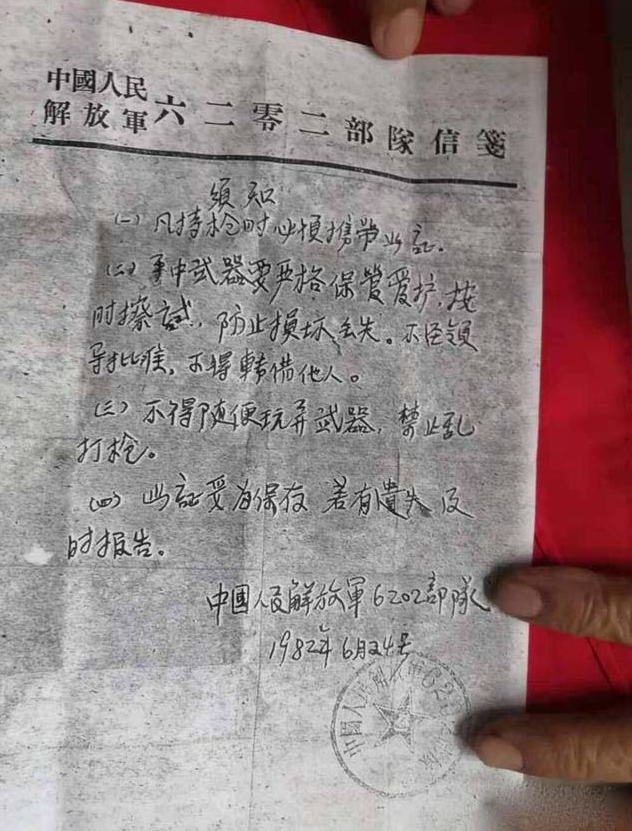 中國人民
解放軍六二零二部隊信箋
须知
(一) 凡持枪时必须攜带此証.
(二) 手中武器要严格保管爱护, 按
时擦拭, 防止損坏丢失。不经领
导批准, 不得轉借他人。
(三) 不得随便玩弄武器, 禁止乱
打枪。
(四) 此証妥为保存 若有遺失 及
时报告。
中国人民解放軍6202部隊
1982年6月24号
中國人民解放軍62